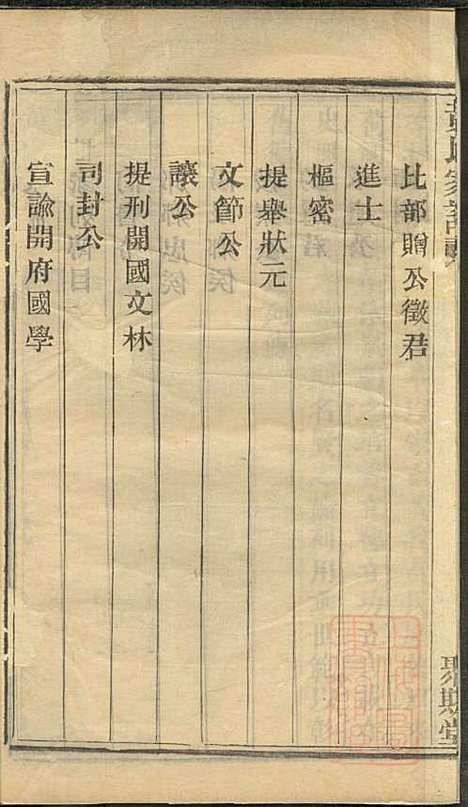 比部贈公徵君
進士
樞密
提舉狀元
文節公
讓公
提刑開國文林
司封公
宣諭開府國學